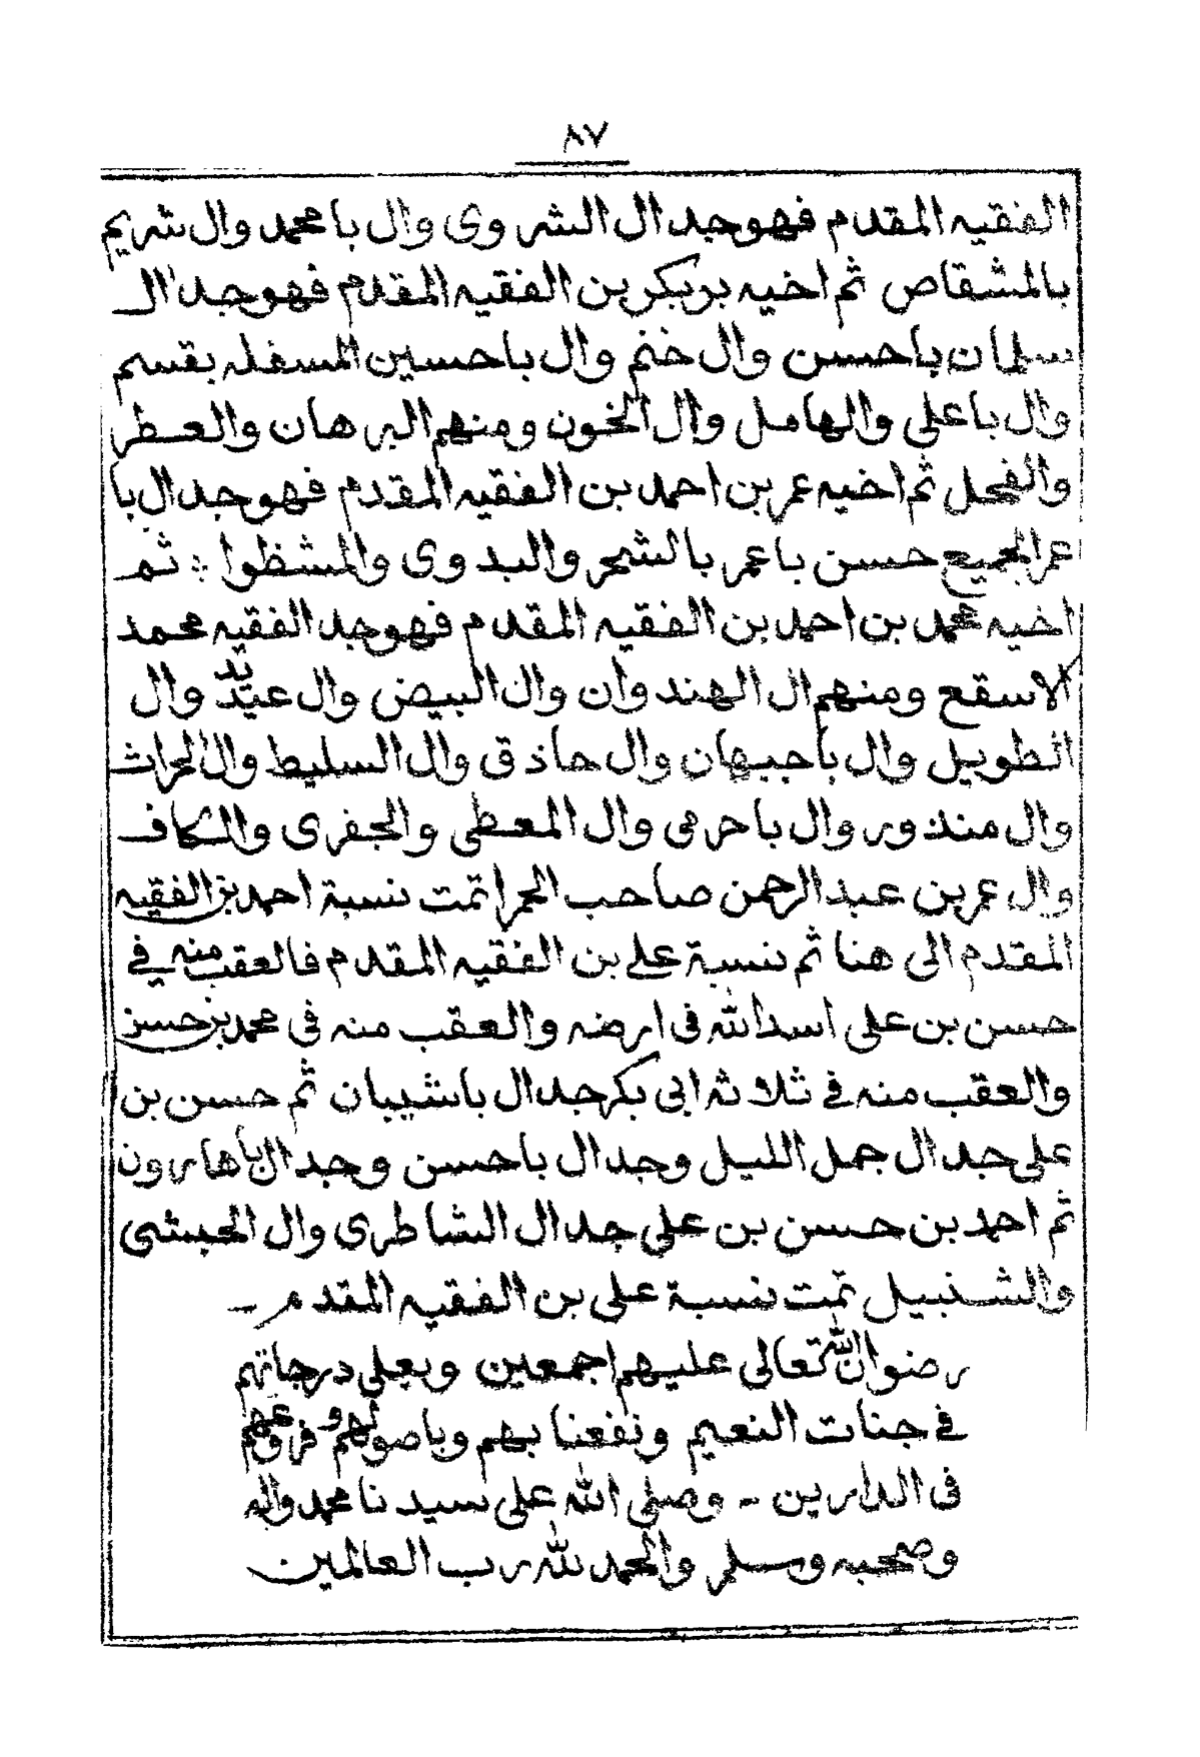 ٨٧
الفقيه المقدم فهو جد ال الشروى وال با محمد وال شريم
بالمشقاص ثم اخيه بن بكر بن الفقيه المقدم فهو جد ال
سلمان باحسن وال خنم وال با حسين المسفله بقسم
وال باعلى والهامل وال الخون ومنهم البرهان والعطر
والفحل ثم اخيه عمر بن احمد بن الفقيه المقدم فهو جد ال با
عمر الجميع حسن باعمر بالشحر والبدوى والمشظوا ؛ ثم
اخيه محمد بن احمد بن الفقيه المقدم فهو جد الفقيه محمد
الاسقع ومنهم ال الهندوان وال البيض وال عيديد وال
الطويل وال باجبهان وال حاذق وال السليط وال الحراث
وال منذور وال باحرمى وال المعظى والجفرى والكاف
وال عمر بن عبد الرحمن صاحب الحمرا تمت نسبة احمد بن الفقيه
المقدم الى هنا ثم نسبة على بن الفقيه المقدم فالعقب منه في
حسن بن على اسد الله فى ارضه والعقب منه في محمد بن حسن
والعقب منه في ثلاثه ابى بكر جد ال باشيبان ثم حسن بن
على جد ال جمل الليل وجد ال باحسن وجد ال باهارون
ثم احمد بن حسن بن على جد ال الشاطرى وال الحبشى
والشنبيل تمت نسبة على بن الفقيه المقدم ـ
رضوان الله تعالى عليهم اجمعين ويعلى درجاتهم
في جنات النعيم ونفعنا بهم وباصولهم وفروعهم
فى الدارين - وصلى الله على سيدنا محمد واله
وصحبه وسلم والحمد لله رب العالمين